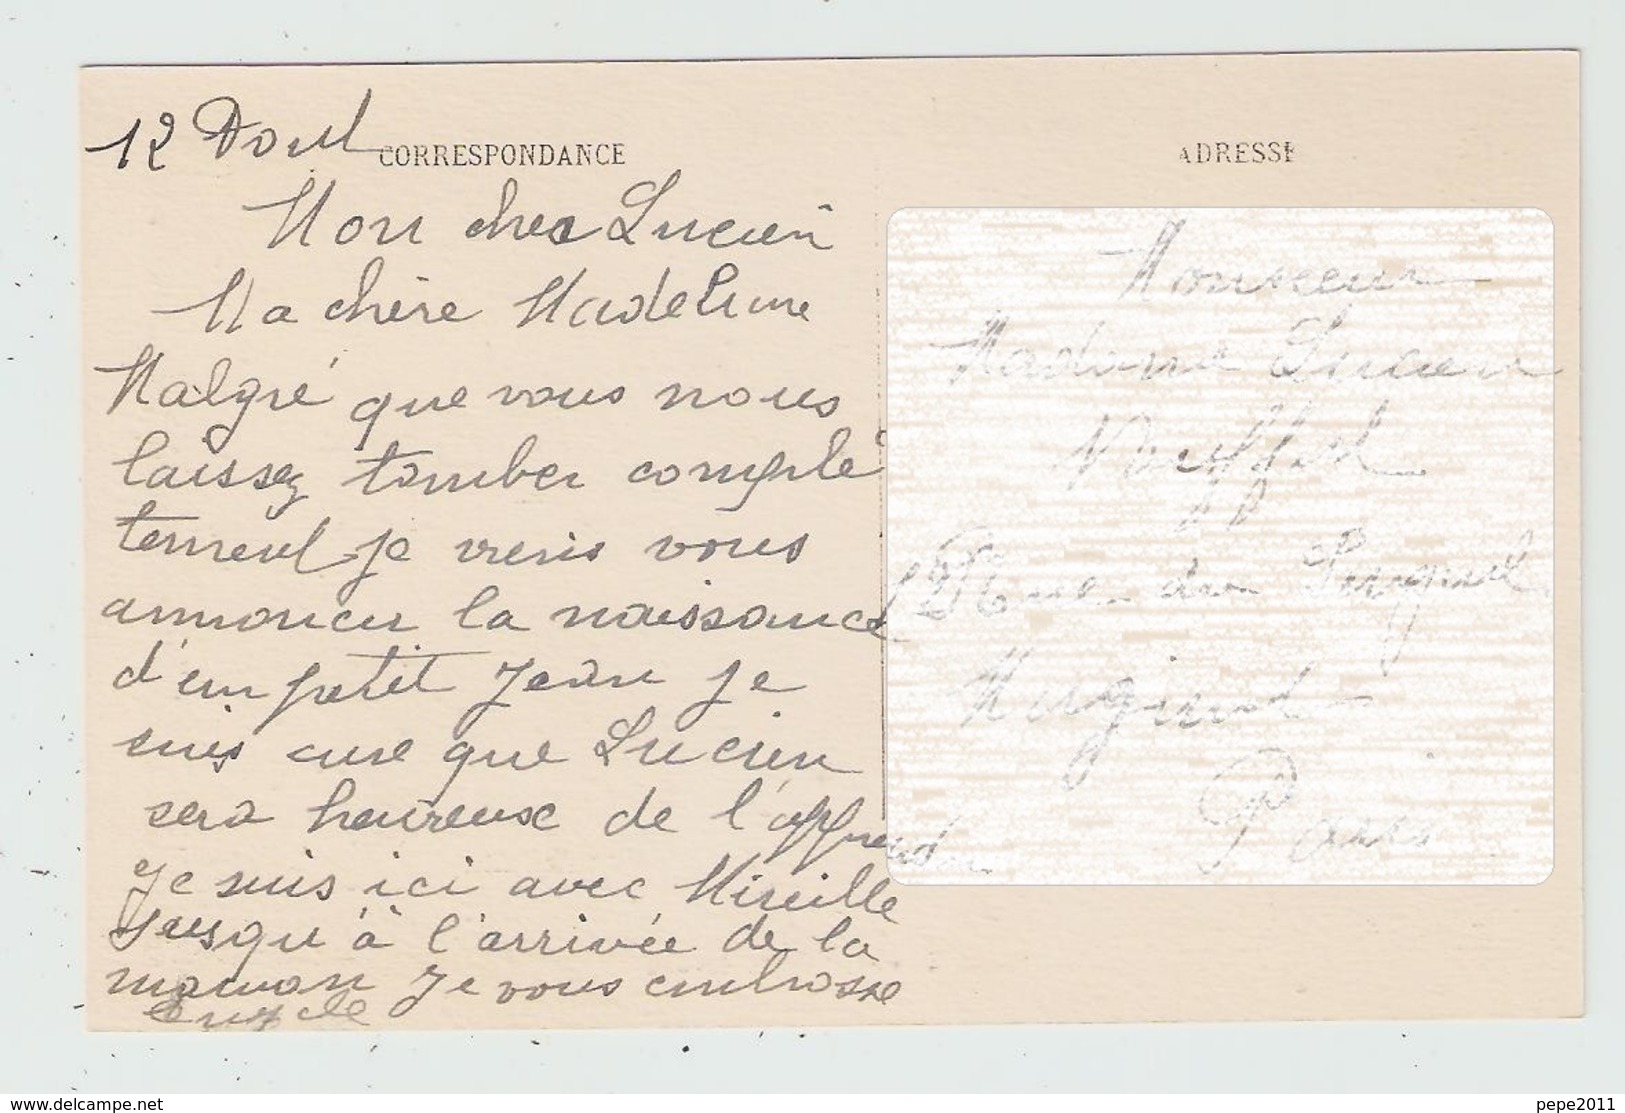 12 Aout
CORRESPONDANCE
Mon cher Lucien
Ma chère Madeleine
Malgré que vous nous
laissez tomber complè
tement je viens vous
annoncer la naissance
d'un petit Jean je
suis sure que Lucien
sera heureuse de l'apprendre
Je suis ici avec Mireille
Jusqu'à l'arrivée de la
maman Je vous embrasse
ADRESSE
Monsieur
Madame Lucien
Rue du
Paris
www.delcampe.net
pepe2011